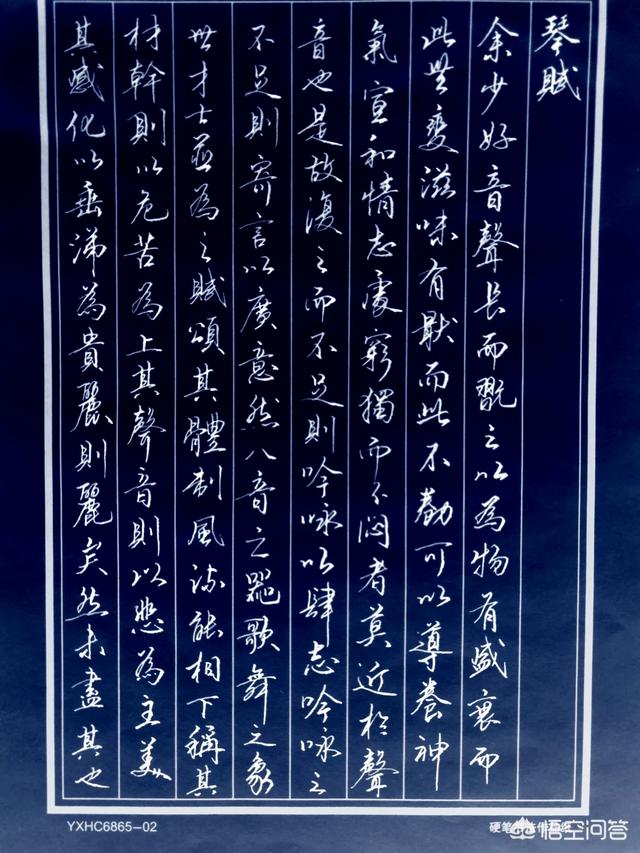 琴賦
余少好音聲長而翫之以為物有盛衰而
此無變滋味有猒而此不勌可以導養神
氣宣和情志處窮獨而不悶者莫近於聲
音也是故復之而不足則吟咏以肆志吟咏之
不足則寄言以廣意然八音之器歌舞之象
世才士並為之賦頌其體制風流能相下稱其
材幹則以危苦為上其聲音則以悲為主美
其感化以垂涕為貴麗則麗矣然未盡其也
YXHC6865-02
硬笔
悟空问答